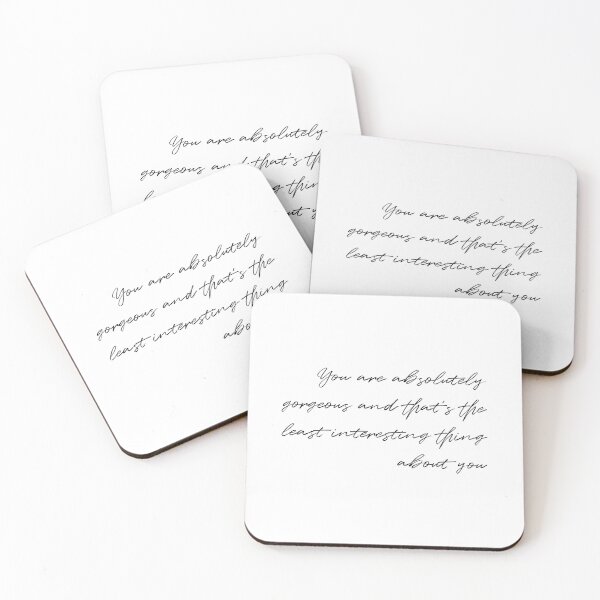 You are absolutely
gorgeous and that's th
least interesting thin
about y
You are absolutely
gorgeous and that's the
least interesting thing
about you
You are absolutely
gorgeous and that's the
least interesting thing
abo
You are absolutely
gorgeous and that's the
least interesting thing
about you